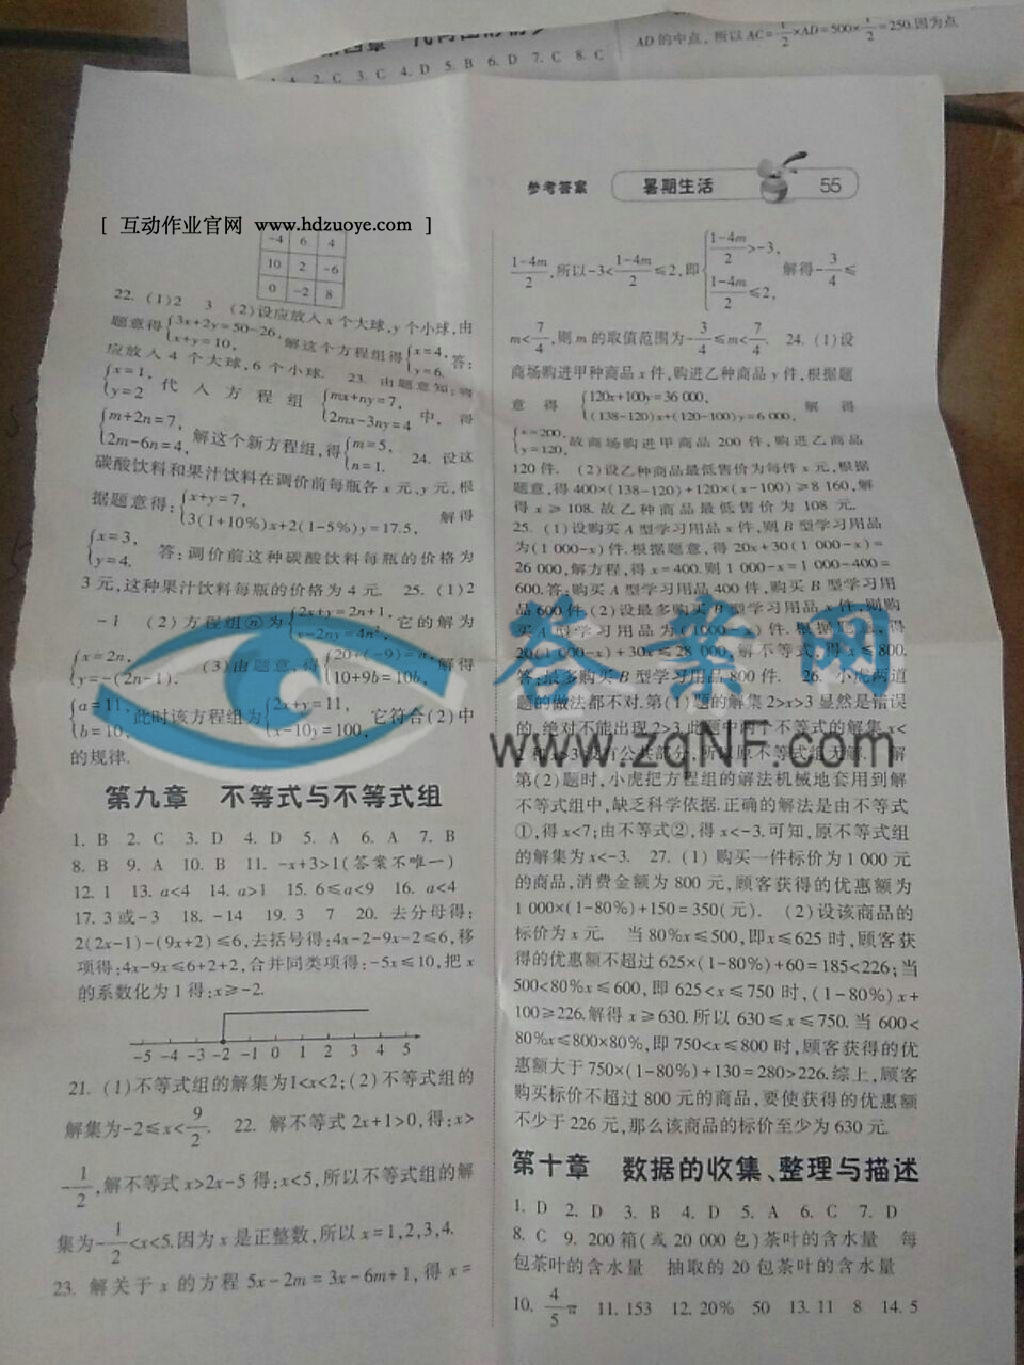 AD的中点，所以AC=1/2×AD=500×1/2=250.因为点
2. C 3. C 4. D 5. B 6. D 7. C 8. C
参考答案 暑期生活 55
[ 互动作业官网 www.hdzuoye.com ]
-4 6 4
10 2 -6
0 -2 8
22. (1)2 3 (2)设应放入x个大球,y个小球,由
题意得{3x+2y=50-26, x+y=10, 解这个方程组得{x=4, y=6. 答:
应放入4个大球,6个小球. 23. 由题意知:将
{x=1, y=2 代入方程组{mx+ny=7, 2mx-3ny=4 中,得
{m+2n=7, 2m-6n=4, 解这个新方程组,得{m=5, n=1. 24. 设这
碳酸饮料和果汁饮料在调价前每瓶各x元、y元,根
据题意得:{x+y=7, 3(1+10%)x+2(1-5%)y=17.5, 解得
{x=3, y=4. 答:调价前这种碳酸饮料每瓶的价格为
3元,这种果汁饮料每瓶的价格为4元. 25. (1)2
-1 (2)方程组ⓝ为{2x+y=2n+1, x-2ny=4n², 它的解为
{x=2n, y=-(2n-1). (3)由题意,得{20+(-9)=a, 10+9b=10b, 解得
{a=11, b=10, 此时该方程组为{2x+y=11, x-10y=100, 它符合(2)中
的规律.
第九章 不等式与不等式组
1. B 2. C 3. D 4. D 5. A 6. A 7. B
8. B 9. A 10. B 11. -x+3>1(答案不唯一)
12. 1 13. a<4 14. a>1 15. 6≤a<9 16. a<4
17. 3或-3 18. -14 19. 3 7 20. 去分母得:
2(2x-1)-(9x+2)≤6,去括号得:4x-2-9x-2≤6,移
项得:4x-9x≤6+2+2,合并同类项得:-5x≤10,把x
的系数化为1得:x≥-2.
-5 -4 -3 -2 -1 0 1 2 3 4 5
21. (1)不等式组的解集为1<x<2;(2)不等式组的
解集为-2≤x<9/2. 22. 解不等式2x+1>0,得:x>
-1/2,解不等式x>2x-5得:x<5,所以不等式组的解
集为-1/2<x<5.因为x是正整数,所以x=1,2,3,4.
23. 解关于x的方程5x-2m=3x-6m+1,得x=
1-4m/2,所以-3<1-4m/2≤2,即{1-4m/2>-3, 1-4m/2≤2, 解得-3/4≤
m<7/4,则m的取值范围为-3/4≤m<7/4. 24. (1)设
商场购进甲种商品x件,购进乙种商品y件,根据题
意得{120x+100y=36 000, (138-120)x+(120-100)y=6 000, 解得
{x=200, y=120, 故商场购进甲商品200件,购进乙商品
120件. (2)设乙种商品最低售价为每件x元,根据
题意,得400×(138-120)+120×(x-100)≥8 160,解
得x≥108.故乙种商品最低售价为108元.
25. (1)设购买A型学习用品x件,则B型学习用品
为(1 000-x)件.根据题意,得20x+30(1 000-x)=
26 000,解方程,得x=400.则1 000-x=1 000-400=
600.答:购买A型学习用品400件,购买B型学习用
品600件.(2)设最多购买B型学习用品x件,则购
买A型学习用品为(1 000-x)件.根据题意,得
20(1 000-x)+30x≤28 000,解不等式,得x≤800.
答:最多购买B型学习用品800件. 26. 小虎两道
题的做法都不对.第(1)题的解集2>x>3显然是错误
的,绝对不能出现2>3.此题中两个不等式的解集x<
第(2)题时,小虎把方程组的解法机械地套用到解
不等式组中,缺乏科学依据.正确的解法是由不等式
①,得x<7;由不等式②,得x<-3.可知,原不等式组
的解集为x<-3. 27. (1)购买一件标价为1 000元
的商品,消费金额为800元,顾客获得的优惠额为
1 000×(1-80%)+150=350(元). (2)设该商品的
标价为x元. 当80%x≤500,即x≤625时,顾客获
得的优惠额不超过625×(1-80%)+60=185<226;当
500<80%x≤600,即625<x≤750时,(1-80%)x+
100≥226.解得x≥630.所以630≤x≤750.当600<
80%x≤800×80%,即750<x≤800时,顾客获得的优
惠额大于750×(1-80%)+130=280>226.综上,顾客
购买标价不超过800元的商品,要使获得的优惠额
不少于226元,那么该商品的标价至少为630元.
第十章 数据的收集、整理与描述
1. D 2. D 3. B 4. D 5. A 6. C 7. D
8. C 9. 200箱(或20 000包)茶叶的含水量 每
包茶叶的含水量 抽取的20包茶叶的含水量
10. 4/5π 11. 153 12. 20% 50 13. 11 8 14. 5
答案网
www.zqNF.com